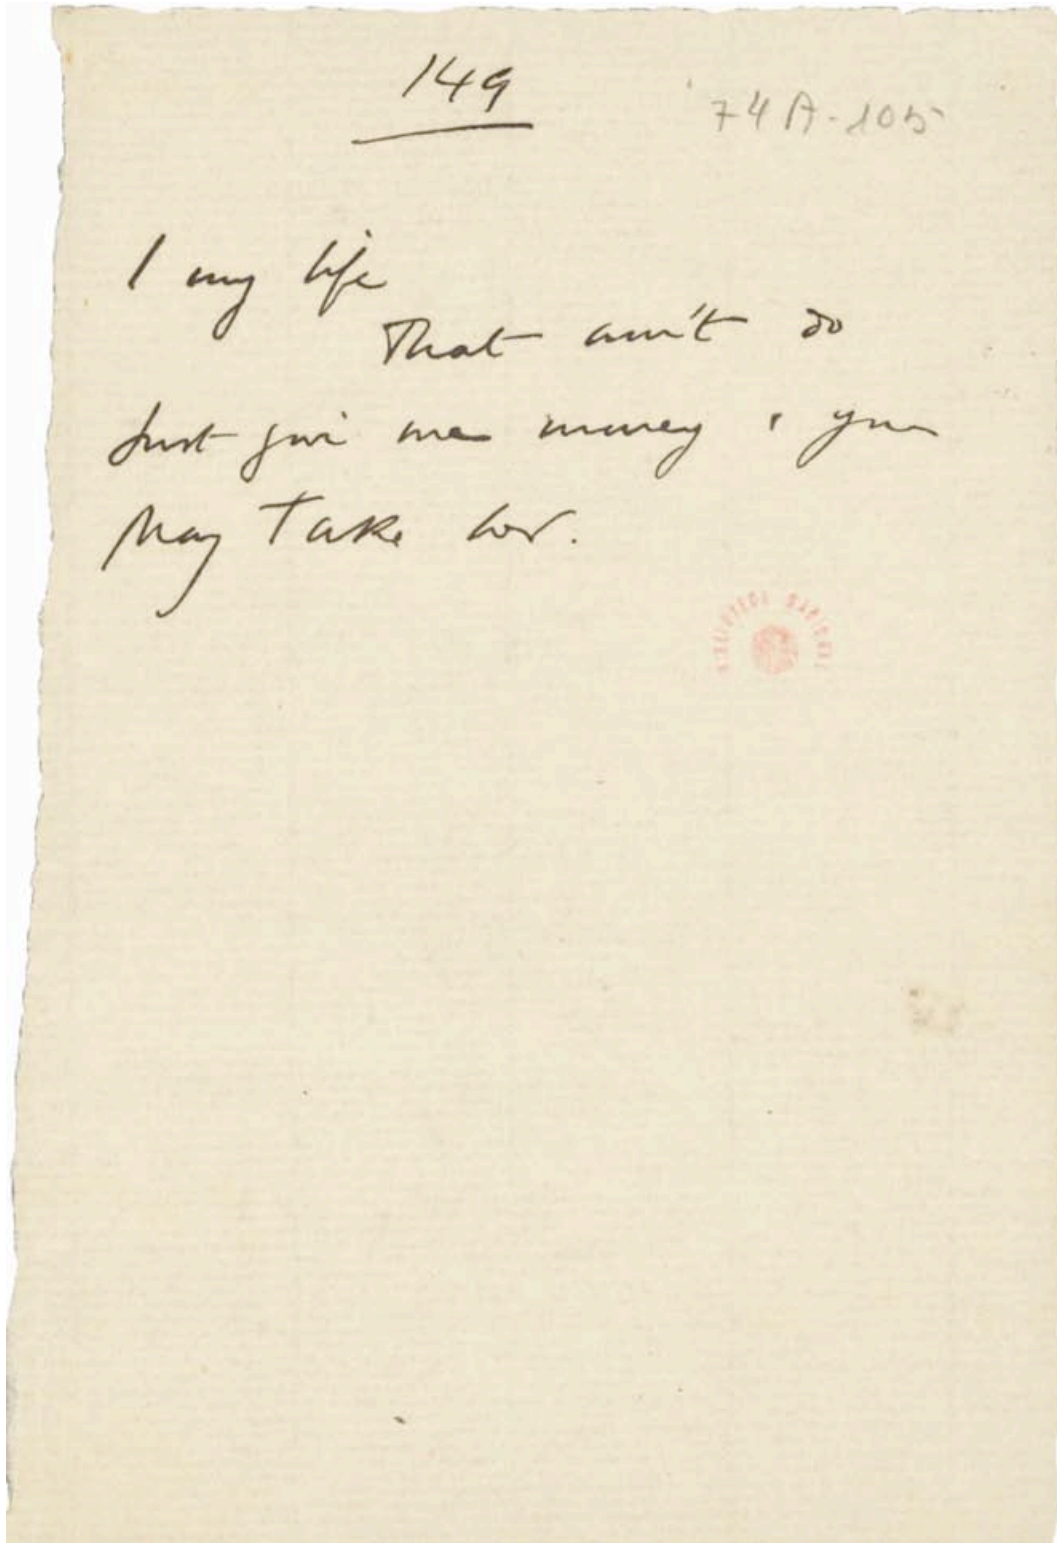 149
74A-105
I my life
That ain't so
Just give me money & you
May Take her.
BIBLIOTECA NACIONAL